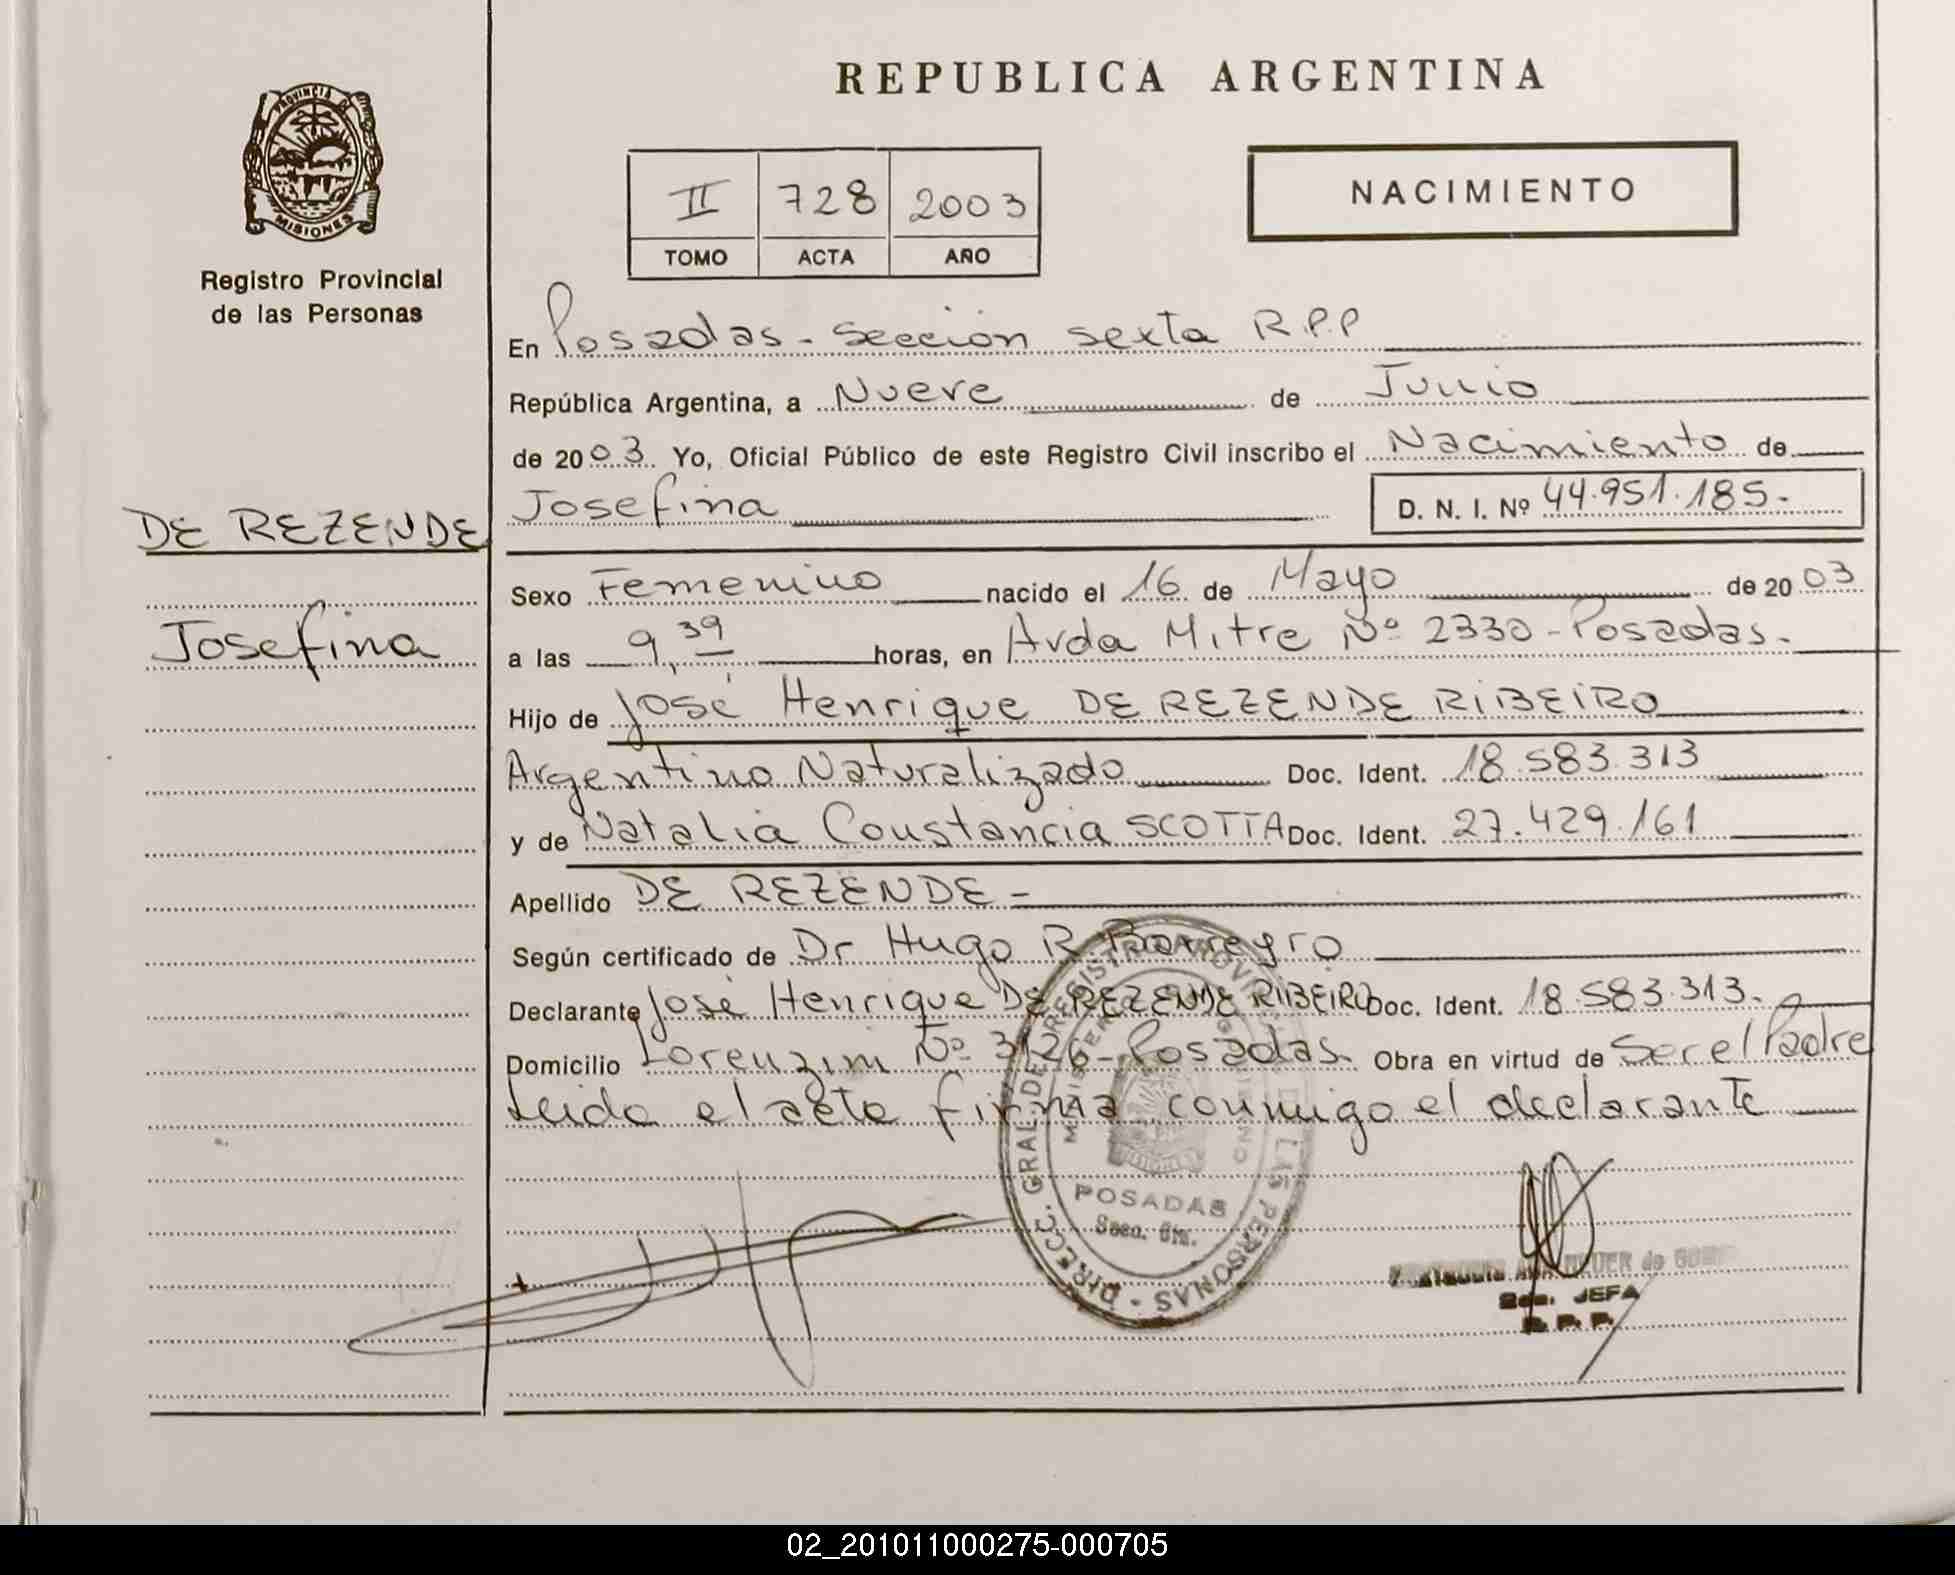 REPUBLICA ARGENTINA
PROVINCIA DE
MISIONES
Registro Provincial
de las Personas
II 728 2003
TOMO ACTA AÑO
NACIMIENTO
En Posadas - Sección sexta R.P.P
República Argentina, a Nueve de Junio
de 2003 Yo, Oficial Público de este Registro Civil inscribo el Nacimiento de
Josefina D. N. I. Nº 44.951.185.-
DE REZENDE
Josefina
Sexo Femenino nacido el 16 de Mayo de 2003
a las 9,39 horas, en Avda Mitre Nº 2330 - Posadas.-
Hijo de José Henrique DE REZENDE RIBEIRO
Argentino Naturalizado Doc. Ident. 18.583.313
y de Natalia Constancia SCOTTA Doc. Ident. 27.429.161
Apellido DE REZENDE -
Según certificado de Dr Hugo R.
Declarante José Henrique DE REZENDE RIBEIRO Doc. Ident. 18.583.313.-
Domicilio Lorenzini Nº 3126 - Posadas. Obra en virtud de Ser el Padre
Leido el acta firma conmigo el declarante
DIRECC. GRAL. DE REGISTRO PROVINCIAL DE LAS PERSONAS
POSADAS
Secc. 6ta.
de
JEFA
R. P. P.
02_201011000275-000705